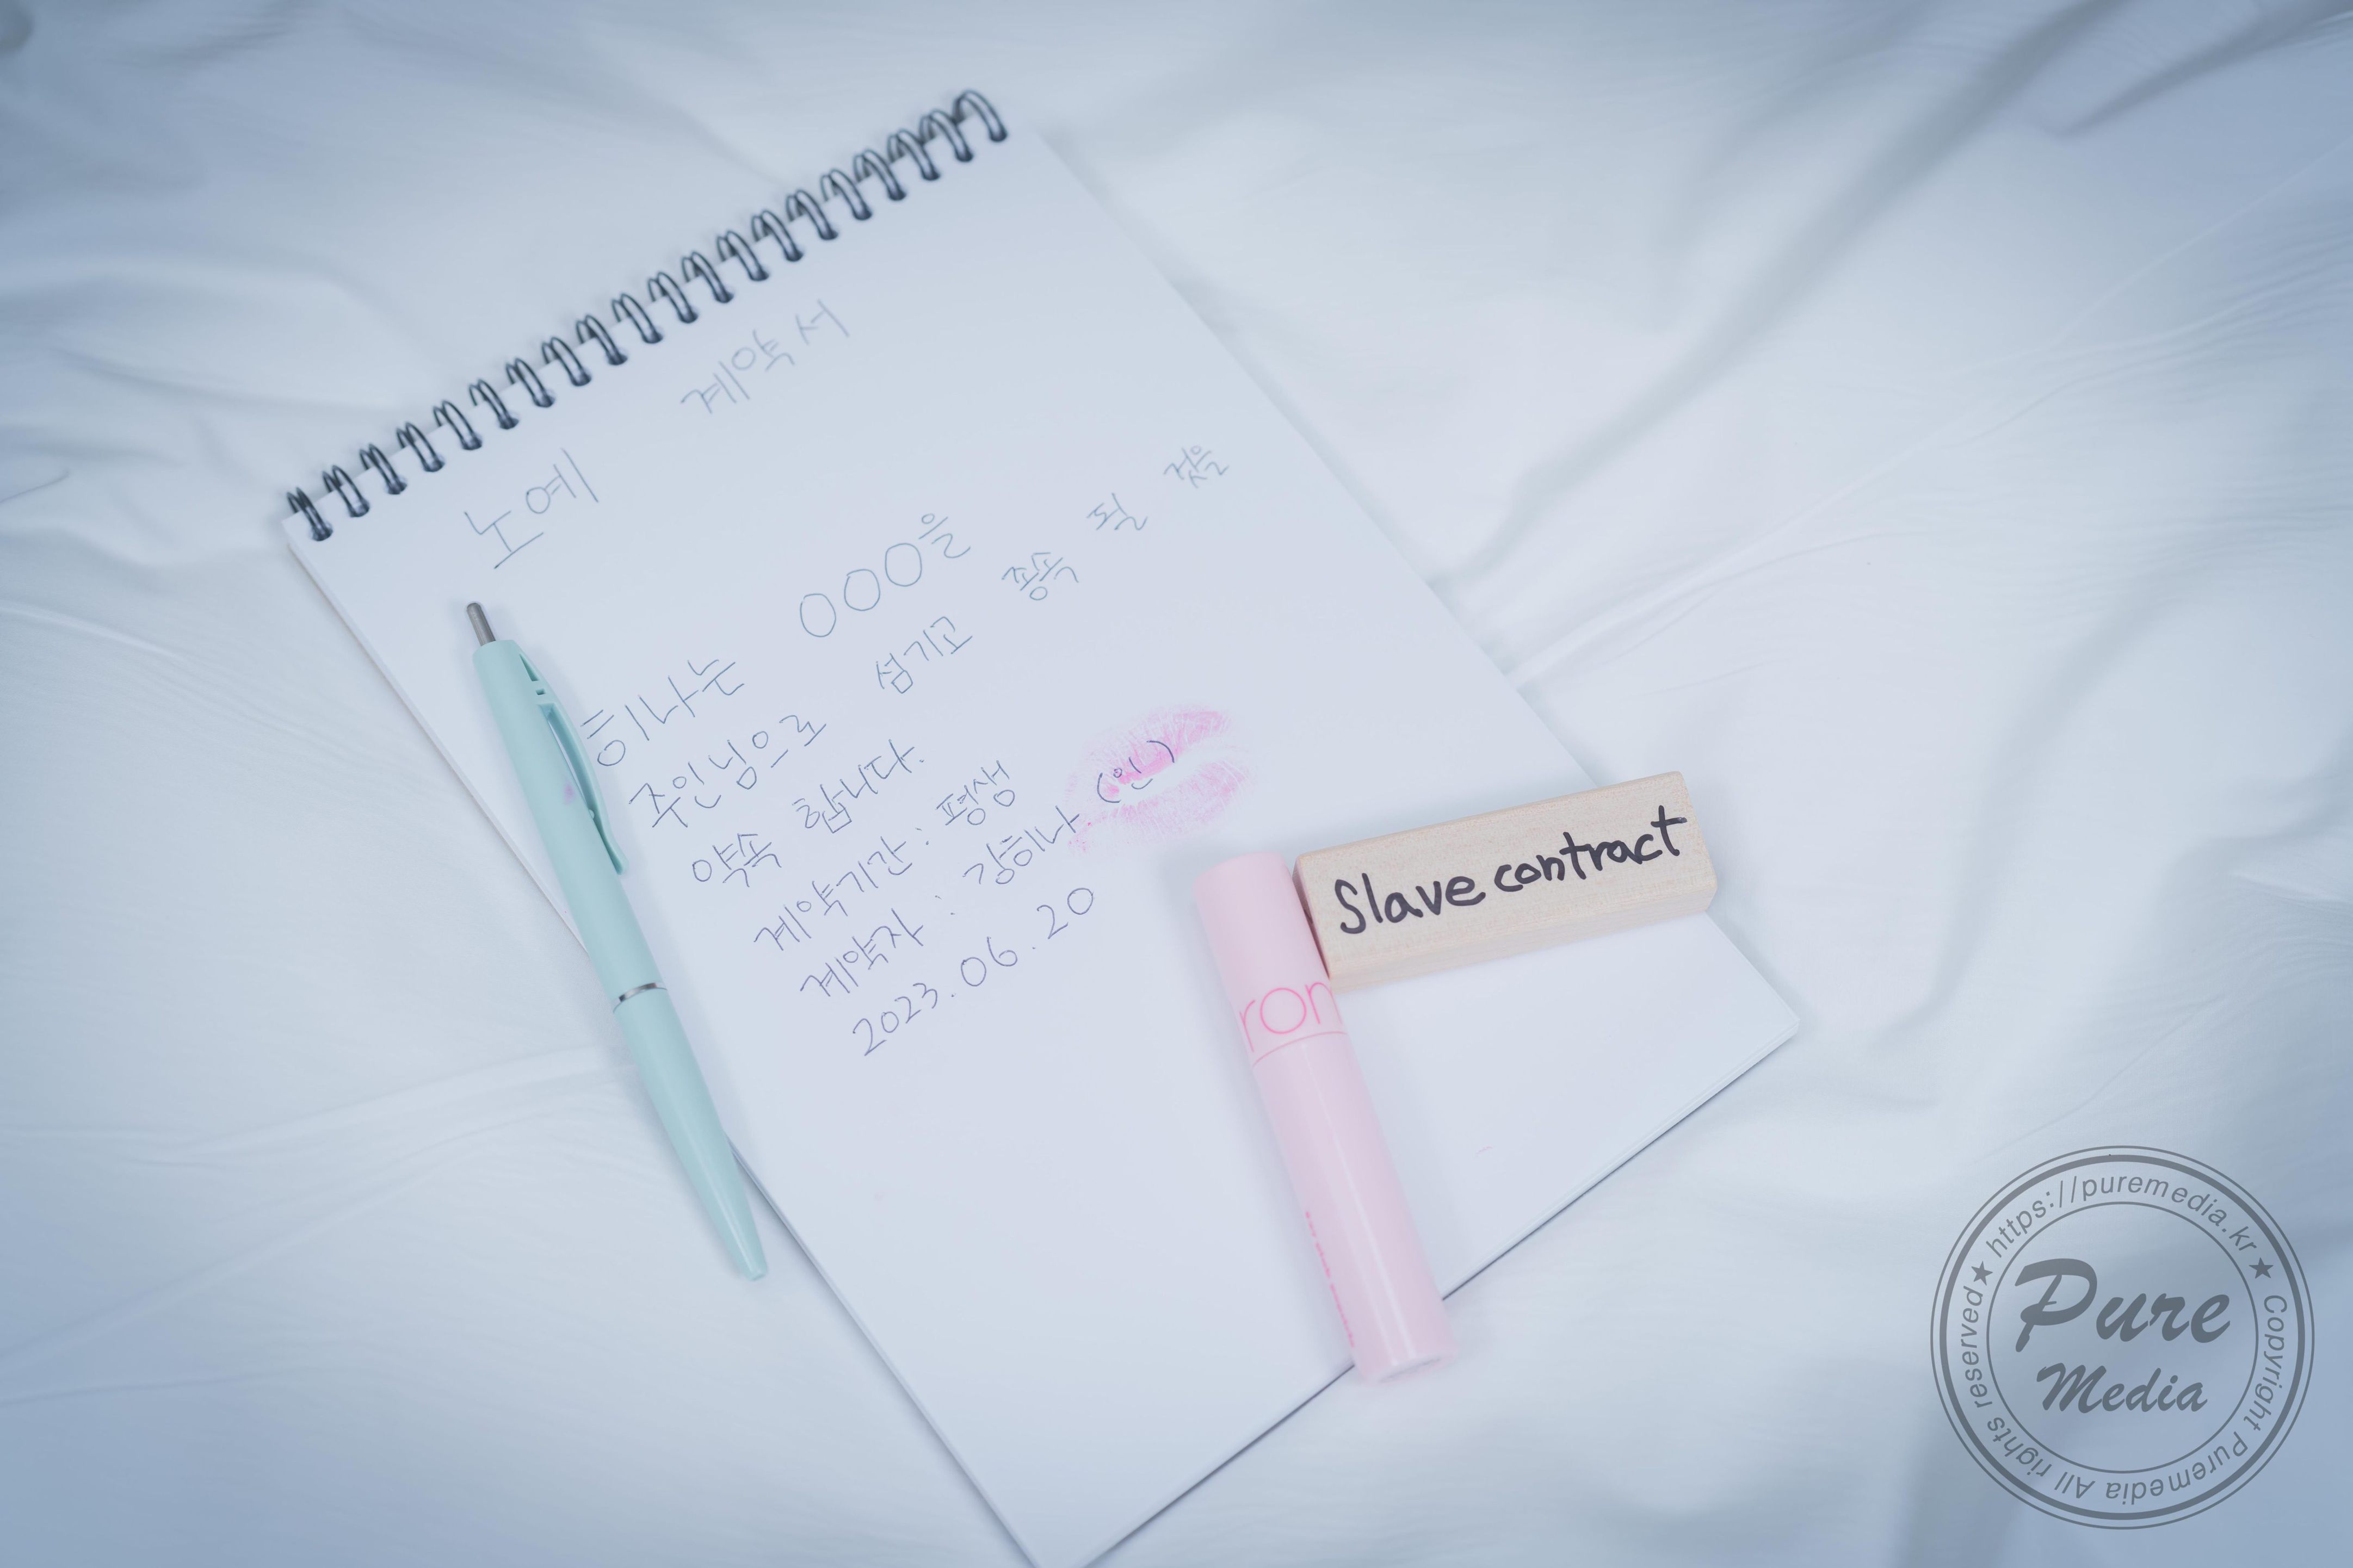 노예 계약서
히나는 OOO을
주인님으로 섬기고 종속 될 것을
약속 합니다.
계약기간 : 평생
계약자 : 강히나 (인)
2023.06.20
Slave contract
ron
★ https://puremedia.kr ★ Copyright Puremedia All rights reserved
Pure
Media